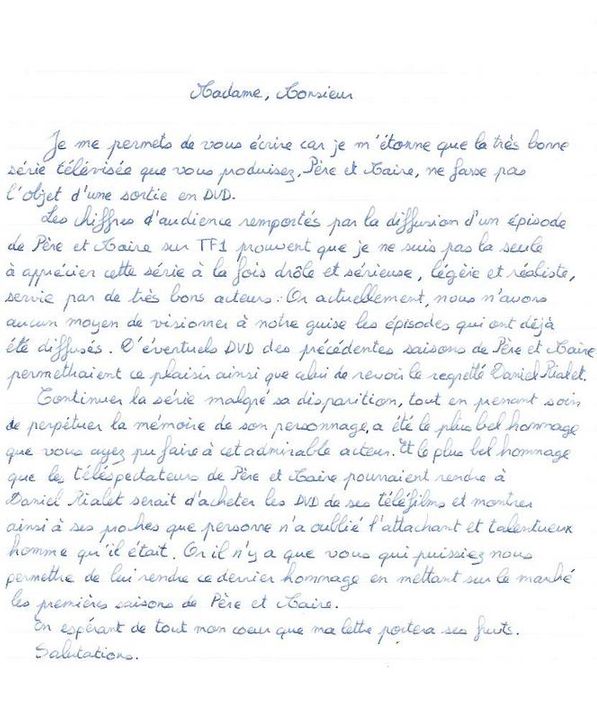 Madame, Monsieur
Je me permets de vous écrire car je m'étonne que la très bonne
série télévisée que vous produisez, Père et Maire, ne fasse pas
l'objet d'une sortie en DVD.
Les chiffres d'audience remportés par la diffusion d'un épisode
de Père et Maire sur TF1 prouvent que je ne suis pas la seule
à apprécier cette série à la fois drôle et sérieuse, légère et réaliste,
servie par de très bons acteurs. Or actuellement, nous n'avons
aucun moyen de visionner à notre guise les épisodes qui ont déjà
été diffusés. D'éventuels DVD des précédentes saisons de Père et Maire
permettraient ce plaisir ainsi que celui de revoir le regretté Daniel Rialet.
Continuer la série malgré sa disparition, tout en prenant soin
de perpétuer la mémoire de son personnage, a été le plus bel hommage
que vous ayez pu faire à cet admirable acteur. Et le plus bel hommage
que les téléspectateurs de Père et Maire pourraient rendre à
Daniel Rialet serait d'acheter les DVD de ses téléfilms et montrer
ainsi à ses proches que personne n'a oublié l'attachant et talentueux
homme qu'il était. Or il n'y a que vous qui puissiez nous
permettre de lui rendre ce dernier hommage en mettant sur le marché
les premières saisons de Père et Maire.
En espérant de tout mon coeur que ma lettre portera ses fruits.
Salutations.